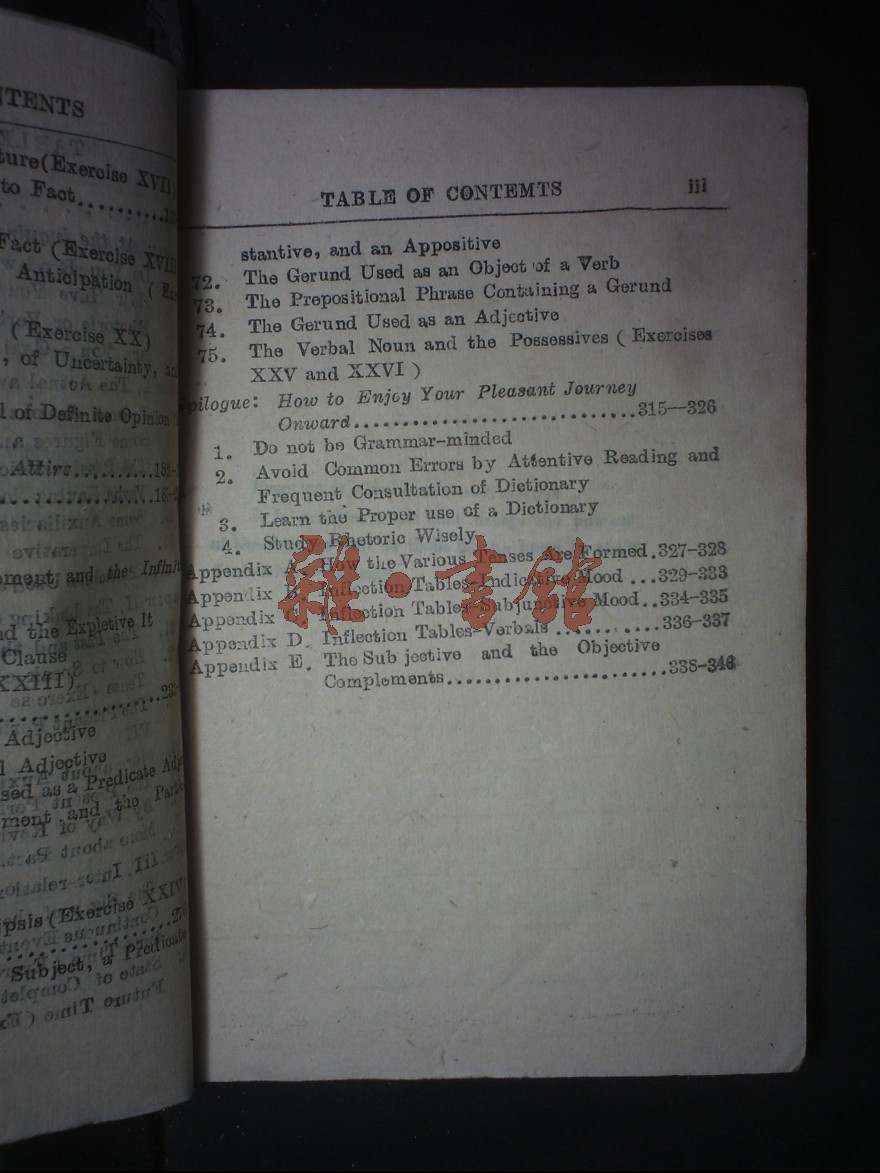 NTENTS
ture(Exercise XVII)
to Fact
Fact (Exercise XVIII
Anticipation (
(Exercise XX)
, of Uncertainty,
l of Definite Opinion
Attire
ment and the Infinit
nd the Expletive It
Clause
XXIII)
Adjective
l Adjective
sed as a Predicate
ment and the
psis (Exercise XXIV)
Subject, a Predicate
TABLE OF CONTEMTS iii
stantive, and an Appositive
72. The Gerund Used as an Object of a Verb
73. The Prepositional Phrase Containing a Gerund
74. The Gerund Used as an Adjective
75. The Verbal Noun and the Possessives ( Exercises
XXV and XXVI )
pilogue: How to Enjoy Your Pleasant Journey
Onward............................315—326
1. Do not be Grammar-minded
2. Avoid Common Errors by Attentive Reading and
Frequent Consultation of Dictionary
3. Learn the Proper use of a Dictionary
4. Study Rhetoric Wisely
Appendix A. How the Various Tenses Are Formed.327-328
Appendix B. Inflection Tables-Indicative Mood ...329-333
Appendix C. Inflection Tables-Subjunctive Mood..334-335
Appendix D. Inflection Tables-Verbals ...........336-337
Appendix E. The Sub jective and the Objective
Complements.......................338-346
雜·書館